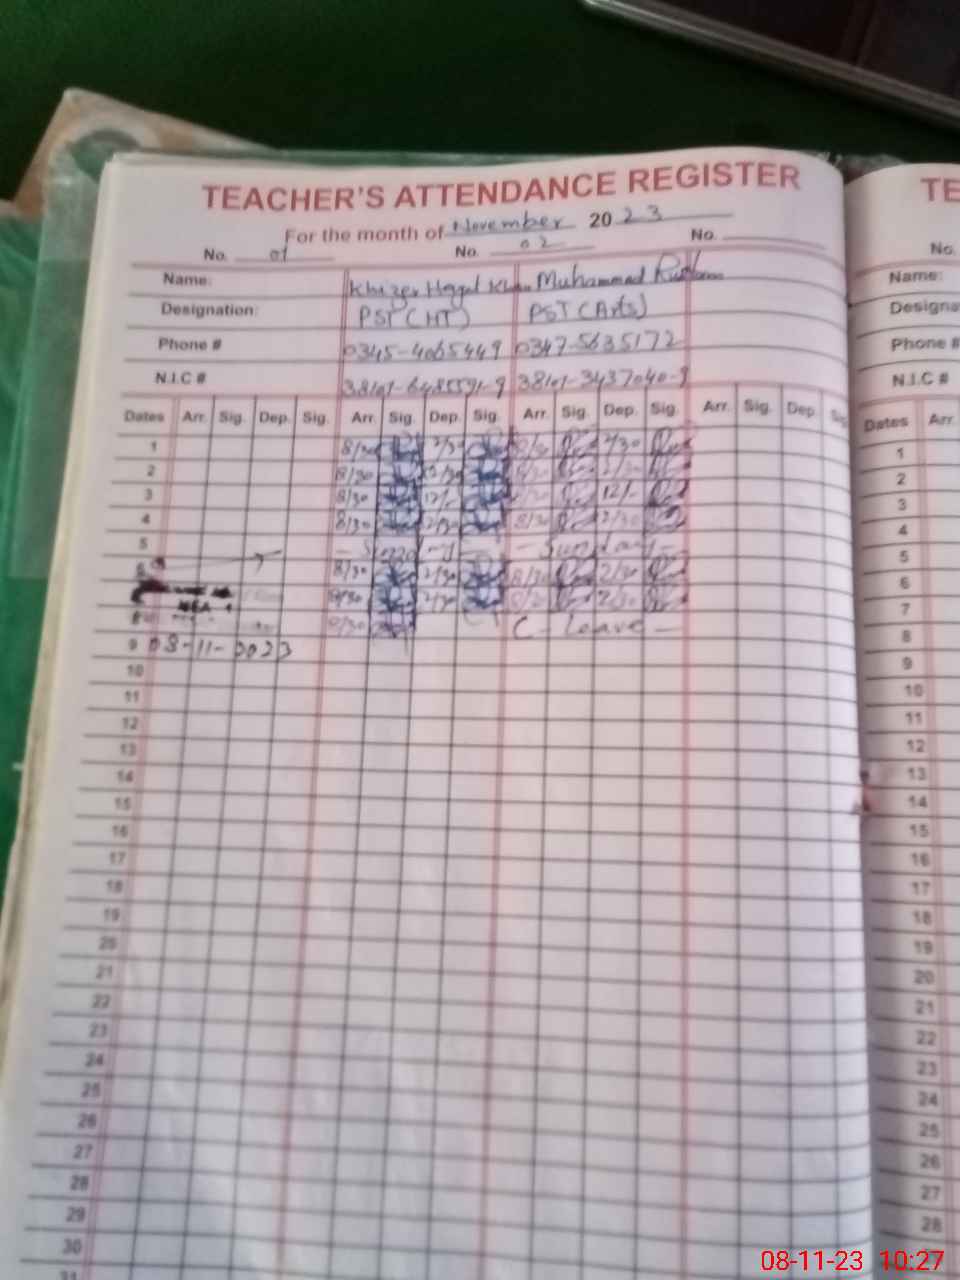 TEACHER'S ATTENDANCE REGISTER
For the month of November 2023
No. 01 No. 02 No.
Name: Khizer Hayat Khan Muhammad
Designation: PST (HT) PST (Arts)
Phone # 0345-4065449 0347-5635172
N.I.C # 38101-6485591-9 38101-3437040-9
Dates Arr. Sig. Dep. Sig. Arr. Sig. Dep. Sig. Arr. Sig. Dep. Sig. Arr. Sig. Dep.
1 8/30 2/30 8/30 2/30
2 8/30 2/30 8/30 2/30
3 8/30 12/- 8/30 12/-
4 8/30 2/30 8/30 2/30
5 - Sunday - - Sunday -
6 8/30 2/30 8/30 2/30
8/30 2/30 8/30 2/30
8 8/30 C - Leave -
9 08-11-2023
10
11
12
13
14
15
16
17
18
19
20
21
22
23
24
25
26
27
28
29
30
31
TE
No.
Name:
Designa
Phone #
N.I.C #
Dates Arr.
1
2
3
4
5
6
7
8
9
10
11
12
13
14
15
16
17
18
19
20
21
22
23
24
25
26
27
28
08-11-23 10:27